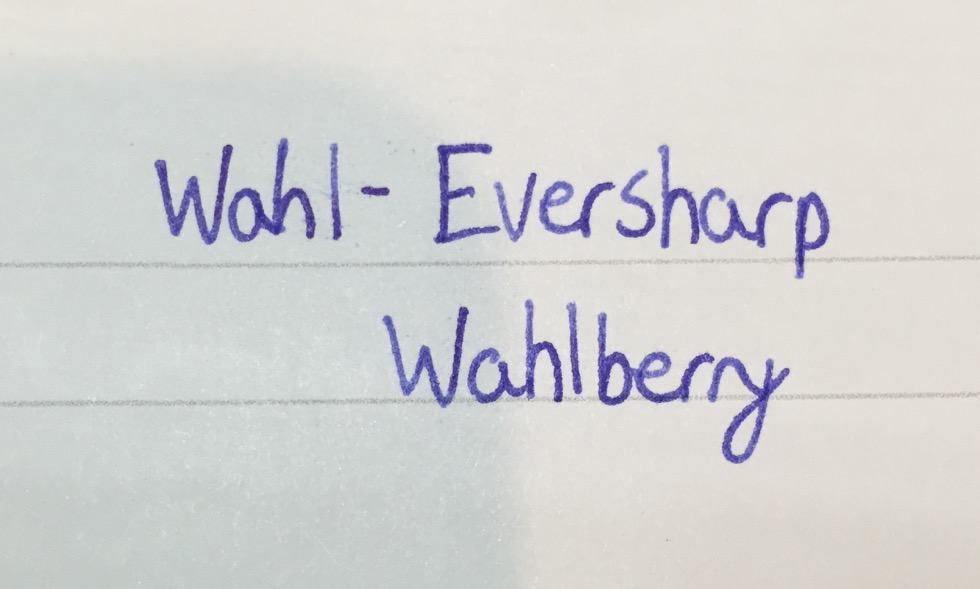 Wahl-Eversharp
Wahlberry